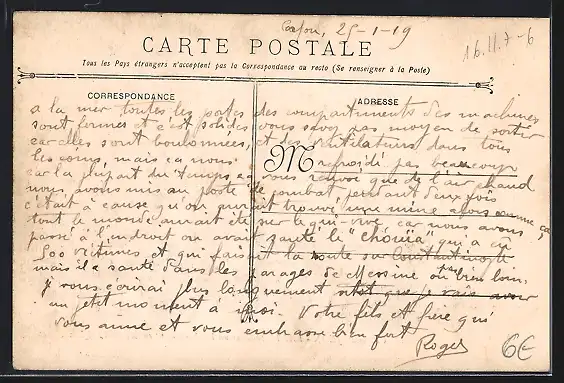 Corfou, 25-1-19
16.11.7-6
CARTE POSTALE
Tous les Pays étrangers n'acceptent pas la Correspondance au recto (Se renseigner à la Poste)
CORRESPONDANCE
ADRESSE
M
a la mer toutes les portes des compartiments des machines
sont fermés et c'est solides vous savez pas moyen de sortir
car elles sont boulonnées, et des ventilateurs dans tous
les coins, mais ça nous refroidi pas beaucoup
car la plupart du temps, ça vous renvoi que de l'air chaud
nous avons mis au poste de combat pendant deux fois
c'était à cause qu'on aurait trouvé une mine alors comme ça,
tout le monde aurait été sur le qui-vive car nous avons
passé à l'endroit ou avait sauté le "Chaouïa" qui a eu
500 victimes et qui faisait la route sur Constantinople
mais il a sauté dans les parages de Messine ou bien loin.
Je vous écrirai plus longuement
un petit moment à moi. Votre fils et frère qui
vous aime et vous embrasse bien fort
Roger
6€